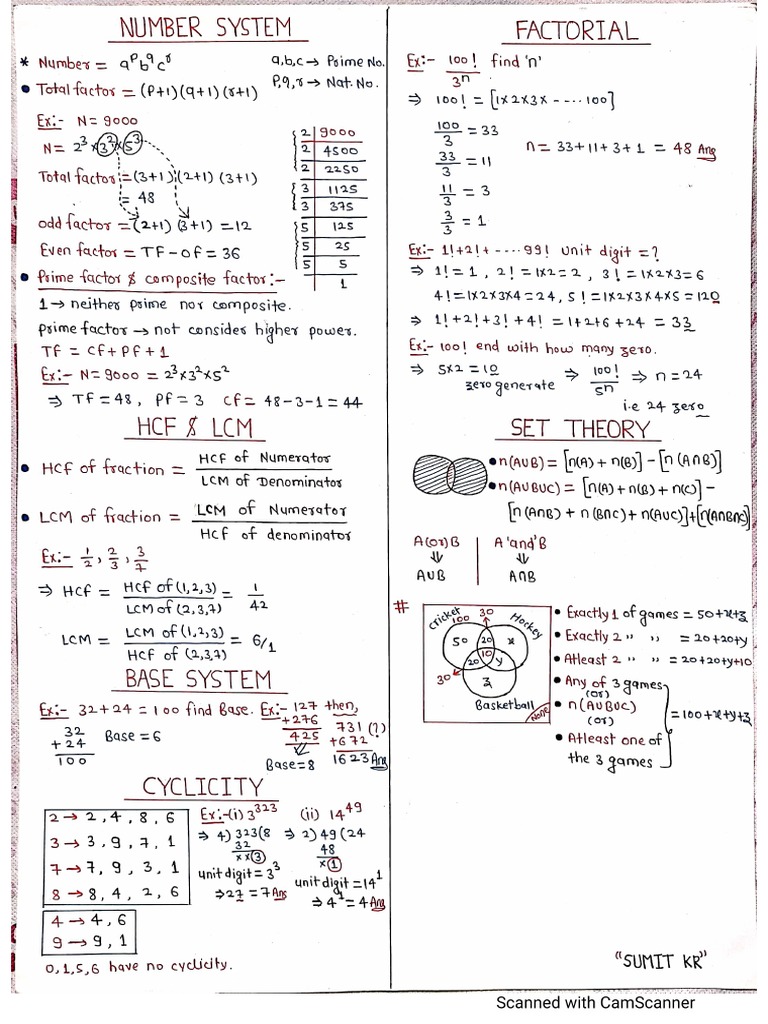 NUMBER SYSTEM
* Number = a^p b^q c^r
a,b,c → Prime No.
p,q,r → Nat. No.
• Total factor = (P+1)(q+1)(r+1)
Ex:- N = 9000
N = 2³ × 3² × 5³
Total factor = (3+1)(2+1)(3+1)
= 48
odd factor = (2+1)(3+1) = 12
Even factor = TF - OF = 36
2 | 9000
2 | 4500
2 | 2250
3 | 1125
3 | 375
5 | 125
5 | 25
5 | 5
1
• Prime factor & composite factor:-
1 → neither prime nor composite.
prime factor → not consider higher power.
TF = CF + PF + 1
Ex:- N = 9000 = 2³×3²×5²
⇒ TF = 48, PF = 3 CF = 48-3-1 = 44
HCF & LCM
• HCF of fraction = HCF of Numerator / LCM of Denominator
• LCM of fraction = LCM of Numerator / HCF of denominator
Ex:- 1/2, 2/3, 3/7
⇒ HCF = HCF of (1,2,3) / LCM of (2,3,7) = 1/42
LCM = LCM of (1,2,3) / HCF of (2,3,7) = 6/1
BASE SYSTEM
Ex:- 32+24 = 100 find Base.
32
+24
100
Base = 6
Ex:- 127 then,
+276
425
Base = 8
731 (?)
+672
1623 Ans
CYCLICITY
2 → 2, 4, 8, 6
3 → 3, 9, 7, 1
7 → 7, 9, 3, 1
8 → 8, 4, 2, 6
4 → 4, 6
9 → 9, 1
0,1,5,6 have no cyclicity.
Ex:-(i) 3^323
⇒ 4)323(8
32
××3
unit digit = 3³
⇒ 27 = 7 Ans
(ii) 14^49
⇒ 2)49(24
48
×1
unit digit = 14¹
⇒ 4¹ = 4 Ans
FACTORIAL
Ex:- 100! / 3^n find 'n'
⇒ 100! = [1×2×3×----100]
100/3 = 33
33/3 = 11
11/3 = 3
3/3 = 1
n = 33+11+3+1 = 48 Ans
Ex:- 1!+2!+----99! Unit digit = ?
⇒ 1! = 1, 2! = 1×2 = 2, 3! = 1×2×3 = 6
4! = 1×2×3×4 = 24, 5! = 1×2×3×4×5 = 120
⇒ 1!+2!+3!+4! = 1+2+6+24 = 33
Ex:- 100! end with how many zero.
⇒ 5×2 = 10 ⇒ 100! / 5^n ⇒ n = 24
zero generate
i.e 24 zero
SET THEORY
• n(AUB) = [n(A) + n(B)] - [n(A∩B)]
• n(AUBUC) = [n(A) + n(B) + n(C)] -
[n(A∩B) + n(B∩C) + n(AUC)] + [n(A∩B∩C)]
A(or)B
⇓
AUB
A 'and' B
⇓
A∩B
#
Cricket
100
30
Hockey
50 20 x
10
20 y
30
z
Basketball
None
• Exactly 1 of games = 50+x+z
• Exactly 2 " " = 20+20+y
• Atleast 2 " " = 20+20+y+10
• Any of 3 games
(or)
• n(AUBUC)
(or)
• Atleast one of
the 3 games
= 100+x+y+z
"SUMIT KR"
Scanned with CamScanner